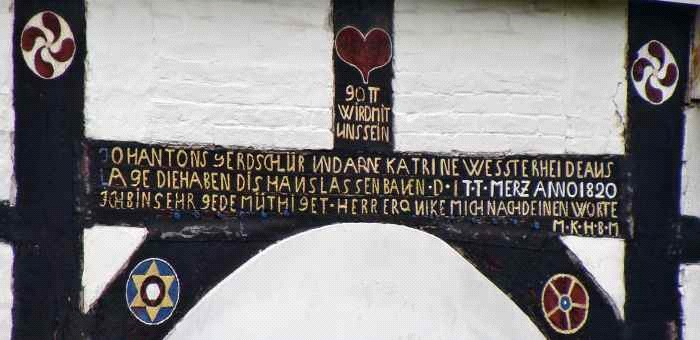 GOTT
WIRDMIT
UNSSEIN
JOHANTONS GERDSCHLÜR UNDARNE KATRINE WESSTERHEIDEAUS
LAGE DIEHABEN DIS HAUSLASSENBAUEN·D·1TT·MERZ ANNO1820
ICHBINSEHR GEDEMÜTHIGET·HERR ERQUIKE MICH NACHDEINEN WORTE
M·K·H·B·M